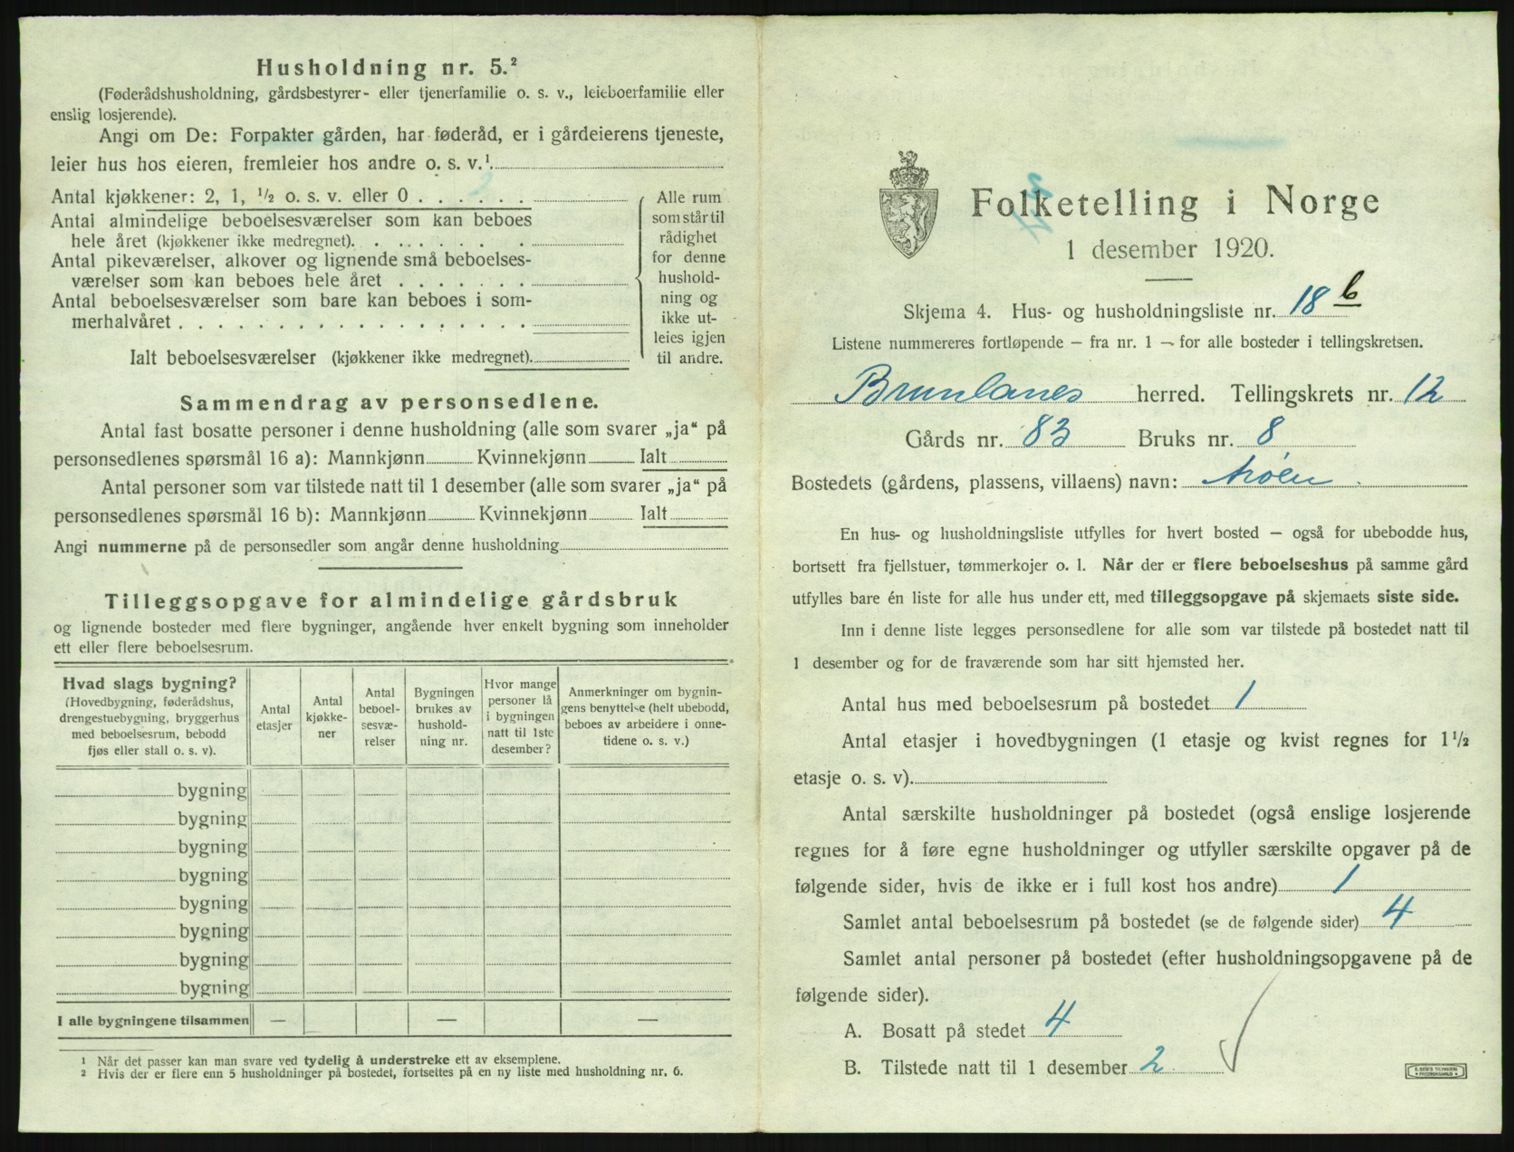 Husholdning nr. 5.²
(Føderådshusholdning, gårdsbestyrer- eller tjenerfamilie o. s. v., leieboerfamilie eller
enslig losjerende).
Angi om De: Forpakter gården, har føderåd, er i gårdeierens tjeneste,
leier hus hos eieren, fremleier hos andre o. s. v.¹
Antal kjøkkener: 2, 1, ½ o. s. v. eller 0 . . . . . .
Antal almindelige beboelsesværelser som kan beboes
hele året (kjøkkener ikke medregnet). . . . . . . .
Antal pikeværelser, alkover og lignende små beboelses-
værelser som kan beboes hele året . . . . . . .
Antal beboelsesværelser som bare kan beboes i som-
merhalvåret . . . . . . . . . . . . . . . . . .
Ialt beboelsesværelser (kjøkkener ikke medregnet).
Alle rum
som står til
rådighet
for denne
hushold-
ning og
ikke ut-
leies igjen
til andre.
Sammendrag av personsedlene.
Antal fast bosatte personer i denne husholdning (alle som svarer „ja“ på
personsedlenes spørsmål 16 a): Mannkjønn Kvinnekjønn Ialt
Antal personer som var tilstede natt til 1 desember (alle som svarer „ja“ på
personsedlenes spørsmål 16 b): Mannkjønn Kvinnekjønn Ialt
Angi nummerne på de personsedler som angår denne husholdning
Tilleggsopgave for almindelige gårdsbruk
og lignende bosteder med flere bygninger, angående hver enkelt bygning som inneholder
ett eller flere beboelsesrum.
Hvad slags bygning?
(Hovedbygning, føderådshus,
drengestuebygning, bryggerhus
med beboelsesrum, bebodd
fjøs eller stall o. s. v).
Antal
etasjer
Antal
kjøkke-
ner
Antal
beboel-
sesvæ-
relser
Bygningen
brukes av
hushold-
ning nr.
Hvor mange
personer lå
i bygningen
natt til 1ste
desember?
Anmerkninger om bygnin-
gens benyttelse (helt ubebodd,
beboes av arbeidere i onne-
tidene o. s. v.)
bygning
bygning
bygning
bygning
bygning
bygning
bygning
bygning
I alle bygningene tilsammen — — —
¹ Når det passer kan man svare ved tydelig å understreke ett av eksemplene.
² Hvis der er flere enn 5 husholdninger på bostedet, fortsettes på en ny liste med husholdning nr. 6.
Folketelling i Norge
1 desember 1920.
Skjema 4. Hus- og husholdningsliste nr. 18 b
Listene nummereres fortløpende — fra nr. 1 — for alle bosteder i tellingskretsen.
Brunlanes herred. Tellingskrets nr. 12
Gårds nr. 83 Bruks nr. 8
Bostedets (gårdens, plassens, villaens) navn:
En hus- og husholdningsliste utfylles for hvert bosted — også for ubebodde hus,
bortsett fra fjellstuer, tømmerkojer o. l. Når der er flere beboelseshus på samme gård
utfylles bare én liste for alle hus under ett, med tilleggsopgave på skjemaets siste side.
Inn i denne liste legges personsedlene for alle som var tilstede på bostedet natt til
1 desember og for de fraværende som har sitt hjemsted her.
Antal hus med beboelsesrum på bostedet 1
Antal etasjer i hovedbygningen (1 etasje og kvist regnes for 1½
etasje o. s. v).
Antal særskilte husholdninger på bostedet (også enslige losjerende
regnes for å føre egne husholdninger og utfyller særskilte opgaver på de
følgende sider, hvis de ikke er i full kost hos andre) 1
Samlet antal beboelsesrum på bostedet (se de følgende sider) 4
Samlet antal personer på bostedet (efter husholdningsopgavene på de
følgende sider).
A. Bosatt på stedet 4
B. Tilstede natt til 1 desember 2